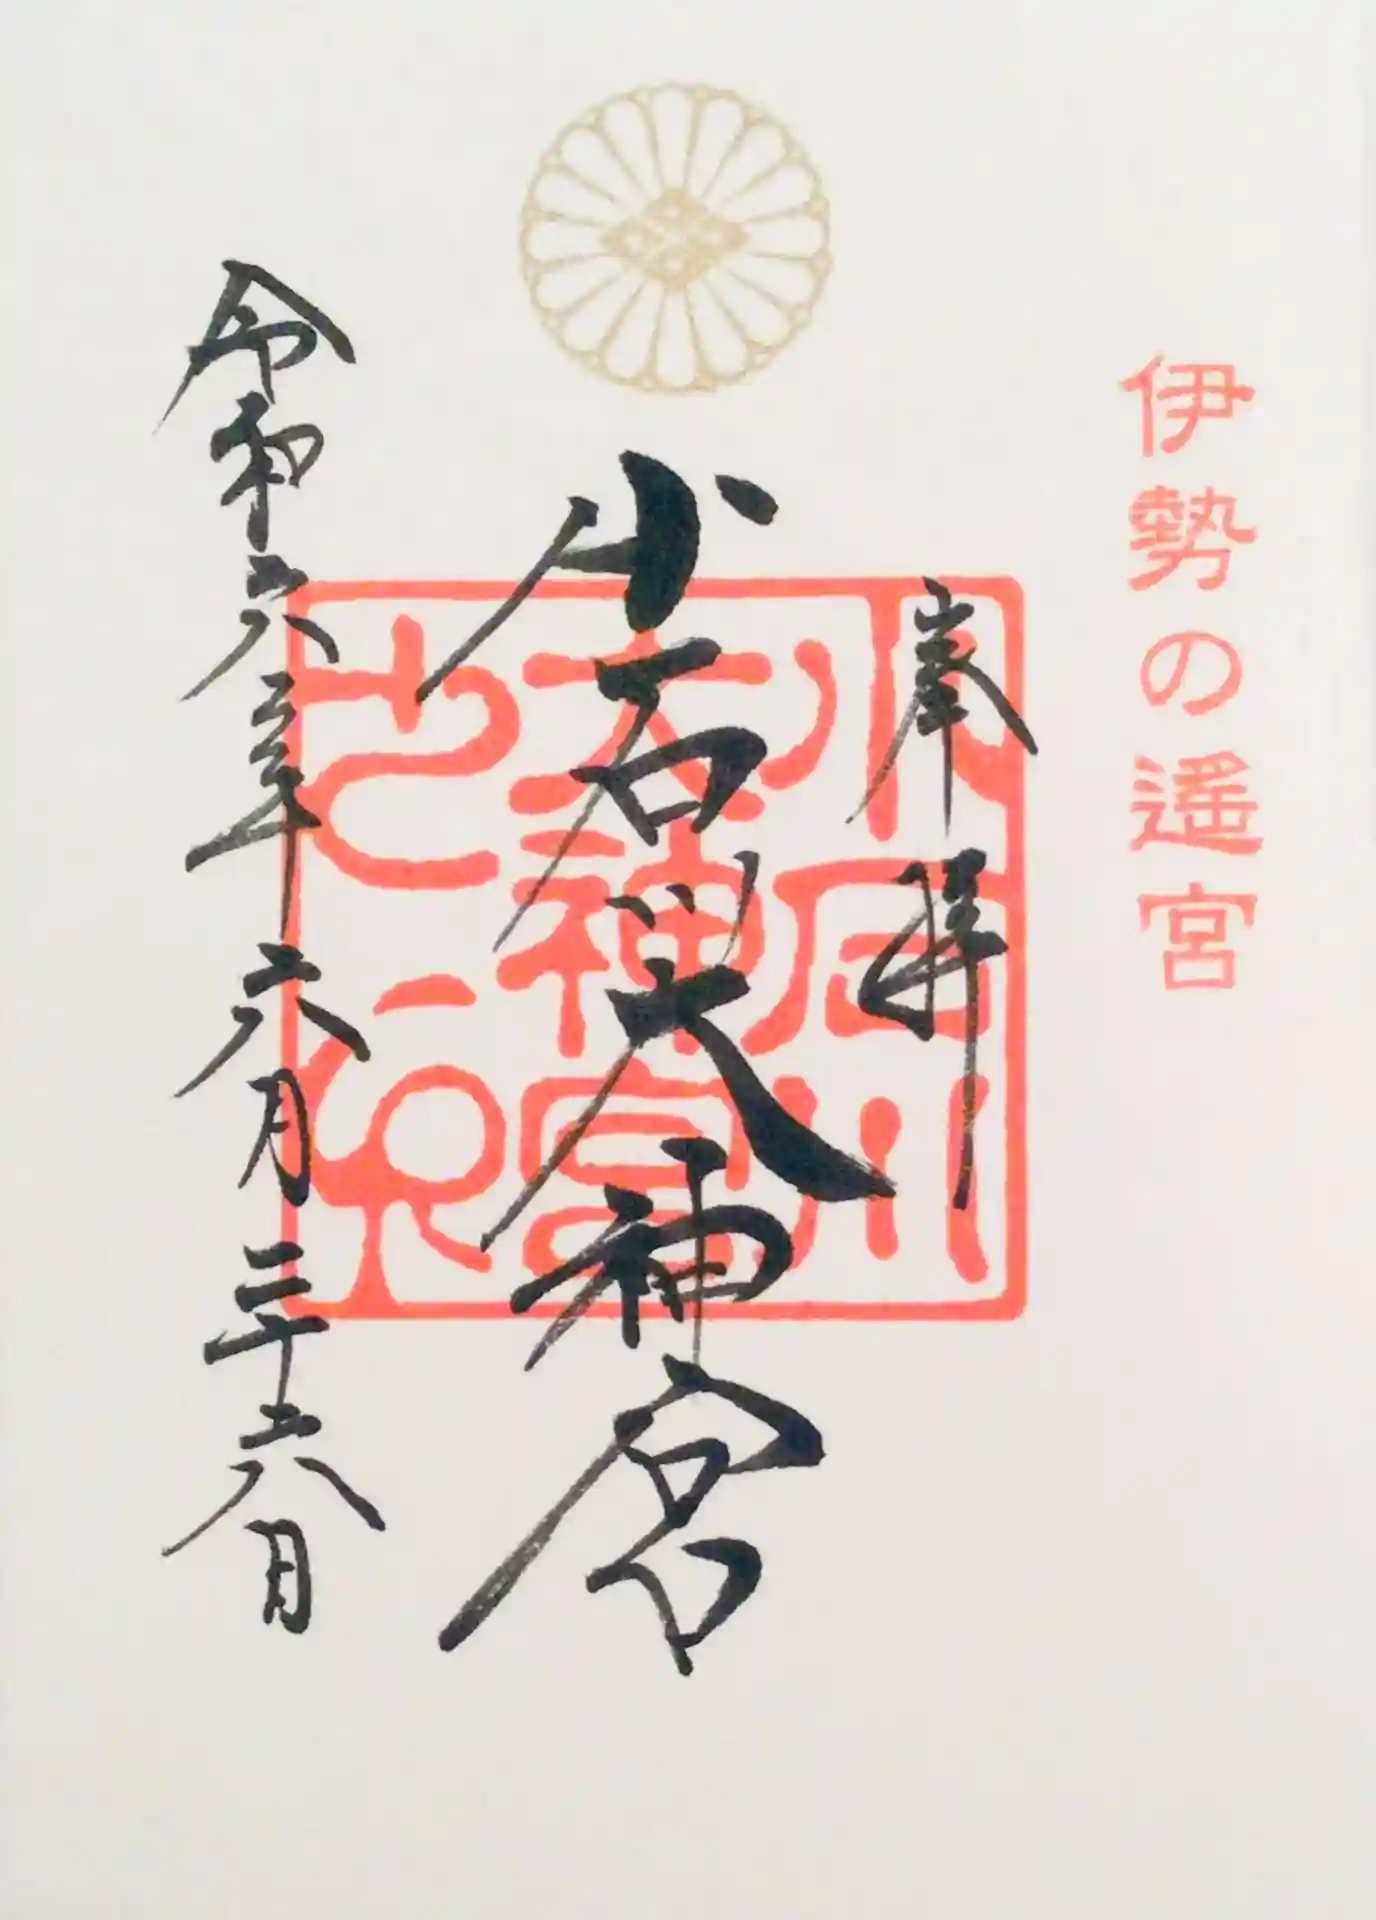 伊勢の遙宮
奉拝
小石川大神宮
令和六年六月二十六日
小石川
大神宮
之印